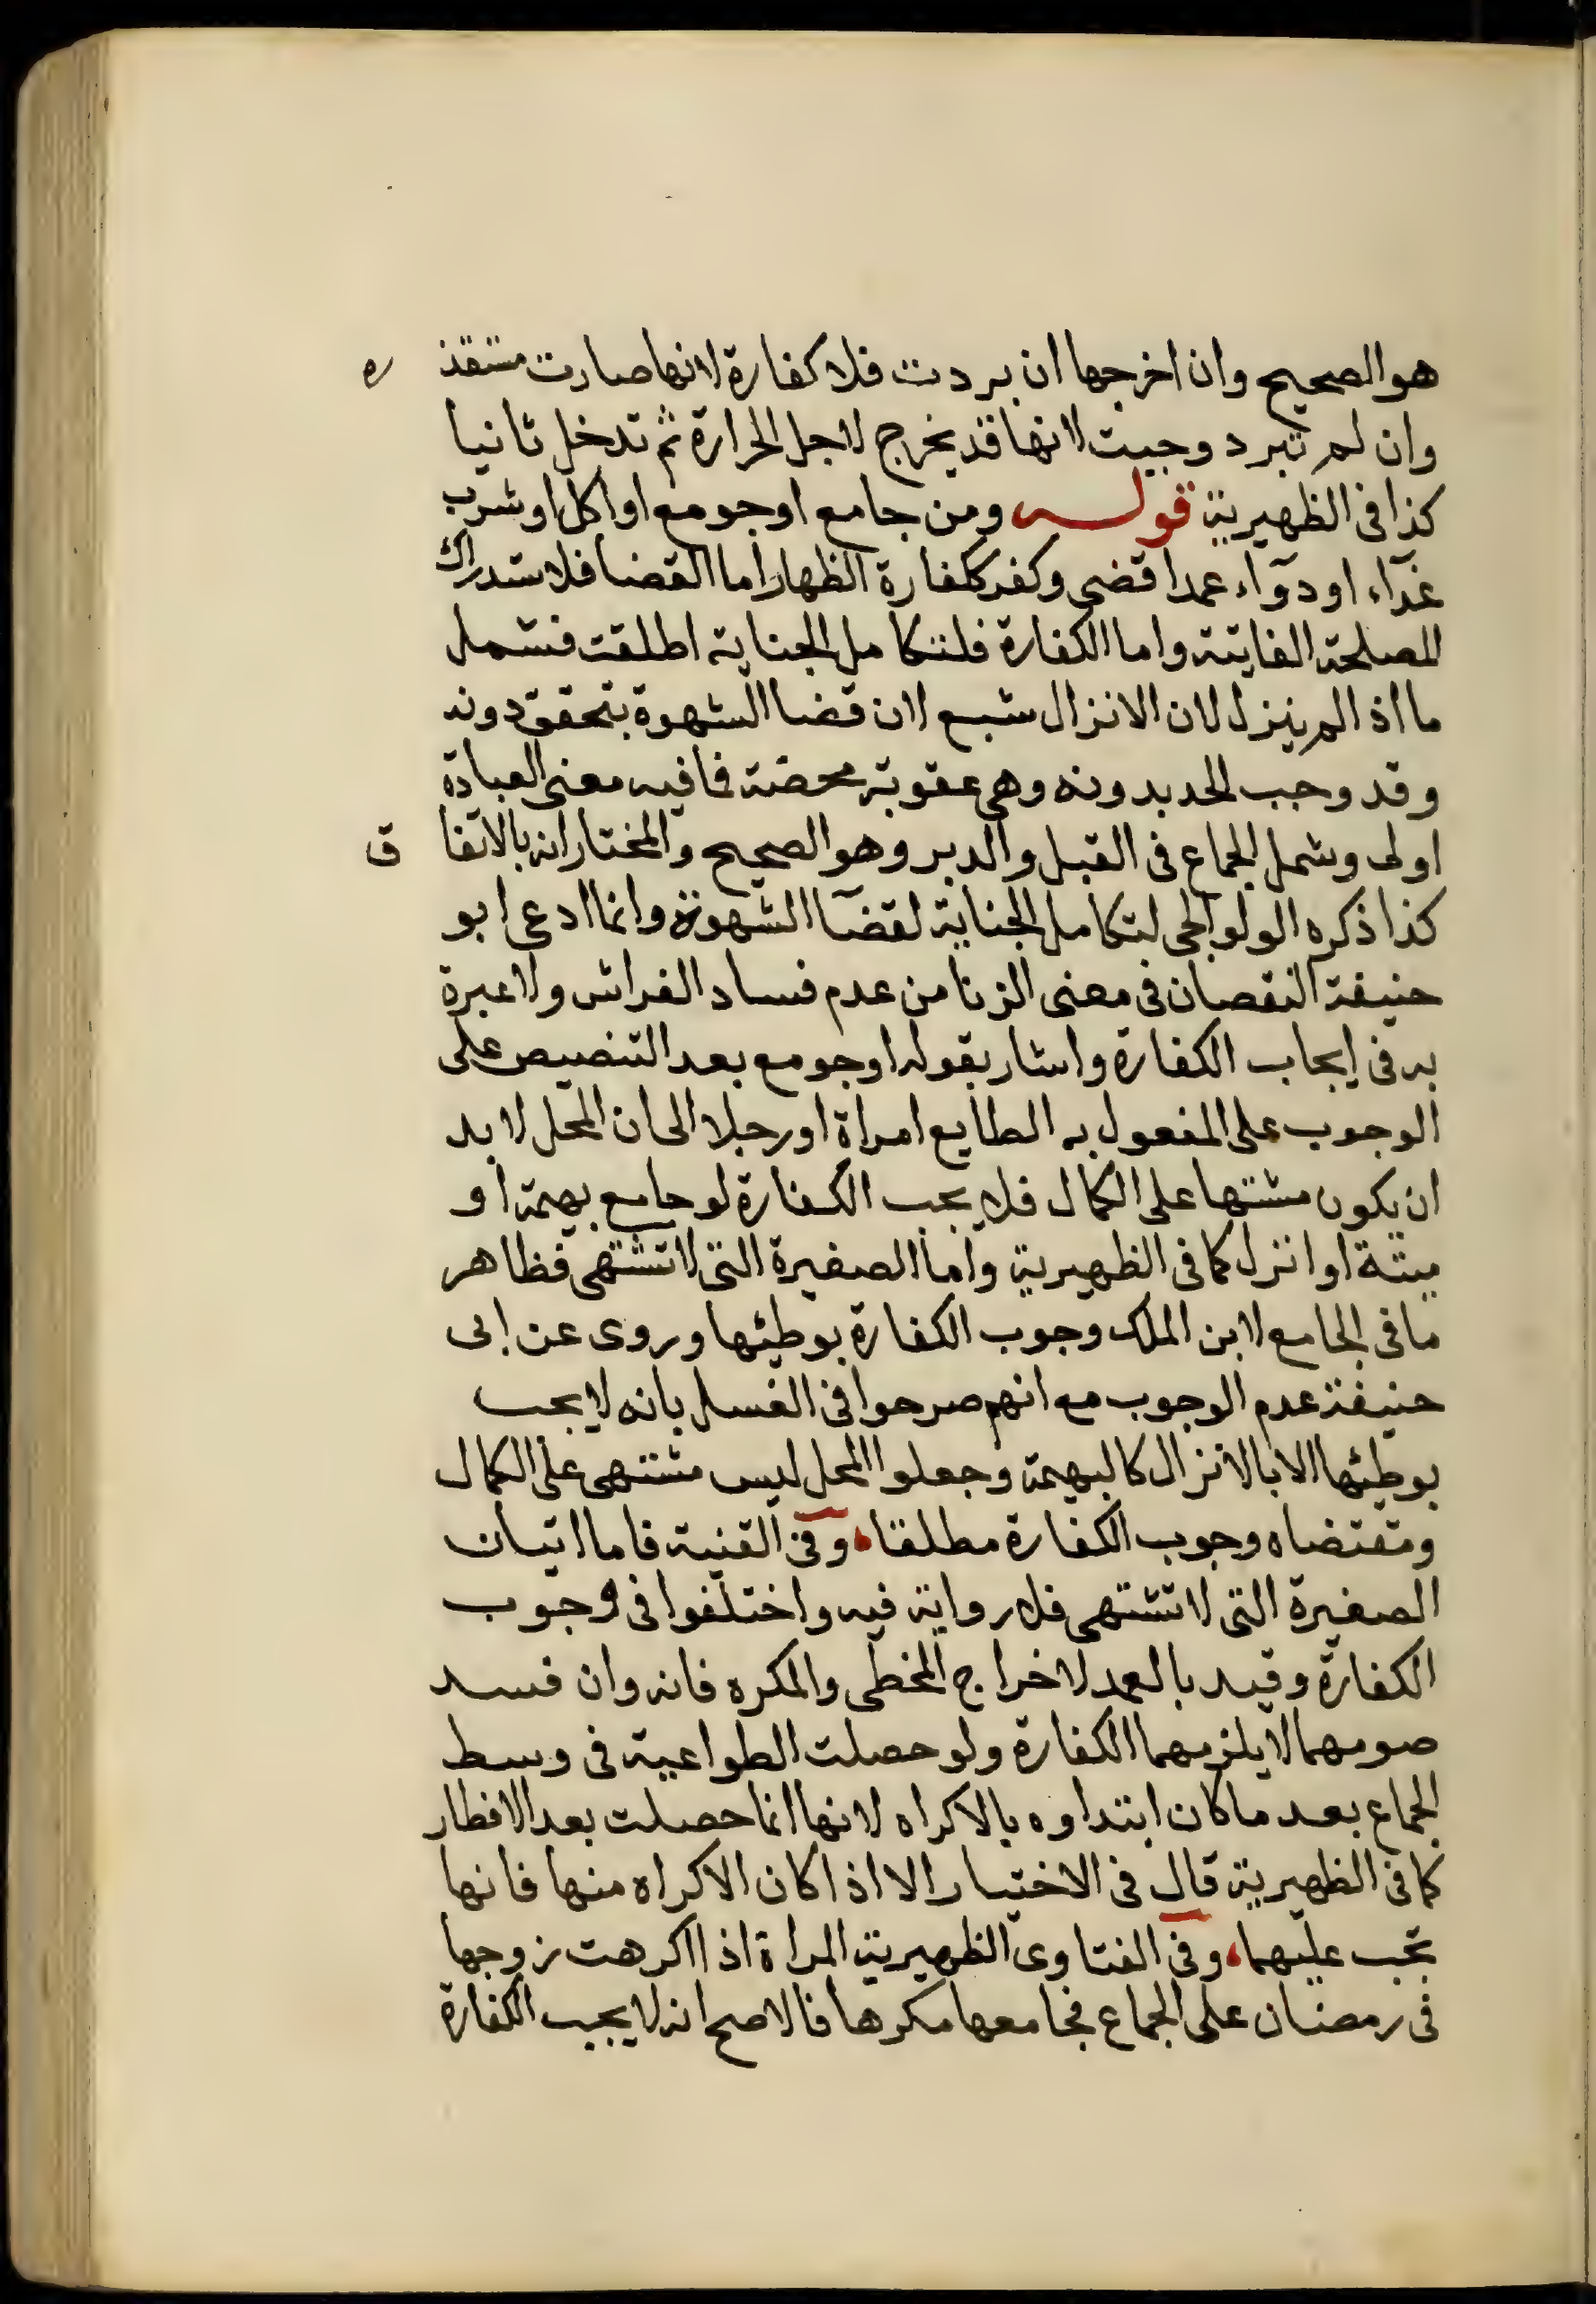 هو الصحيح وان اخرجها ان بردت فلا كفارة لانها صارت مستقذ ره
وان لم تبرد وجبت لانها قد يخرج لاجل الحرارة ثم تدخل ثانيا
كذا فى الظهيرية قوله ومن جامع او جومع او اكل او شرب
غذآء او دوآء عمدا قضى وكفر ككفارة الظهار اما القضا فلاستدراك
المصلحة الفايتة واما الكفارة فلتكامل الجناية اطلقت فشمل
ما اذا لم ينزل لان الانزال شبع لان قضا الشهوة يتحقق دونه
وقد وجب الحد بدونه وهى عقوبة محضة فما فيه معنى العبادة
اولى وشمل الجماع فى القبل والدبر وهو الصحيح والمختار انه بالاتفا ق
كذا ذكره الولوالجى لتكامل الجناية لقضآ الشهوة وانما ادعى ابو
حنيفة النقصان فى معنى الزنا من عدم فساد الفراش ولا عبرة
به فى ايجاب الكفارة واشار بقوله او جومع بعد التنصيص على
الوجوب على المفعول به الطايع امراة او رجلا الى ان المحل لا بد
ان يكون مشتها على الكمال فلا يجب الكفارة لو جامع بهيمة او
ميتة او انزل كما فى الظهيرية واما الصغيرة التى لا تشتهى فظاهر
ما فى الجامع لابن الملك وجوب الكفارة بوطئها وروى عن ابى
حنيفة عدم الوجوب مع انهم صرحوا فى الغسل بانه لا يجب
بوطئها الا بالانزال كالبهيمة وجعلوا المحل ليس مشتهى على الكمال
ومقتضاه وجوب الكفارة مطلقا، وفى القنية فاما اتيان
الصغيرة التى لا تشتهى فلا رواية فيه واختلفوا فى وجوب
الكفارة وقيد بالعمد لاخراج المخطى والمكره فانه وان فسد
صومهما لا يلزمهما الكفارة ولو حصلت الطواعية فى وسط
الجماع بعد ما كان ابتداوه بالاكراه لانها انما حصلت بعد الافطار
كما فى الظهيرية قال فى الاختيار الا اذا كان الاكراه منها فانها
تجب عليهما، وفى الفتاوى الظهيرية المراة اذا اكرهت زوجها
فى رمضان على الجماع فجامعها مكرها فالاصح انه لا يجب الكفارة